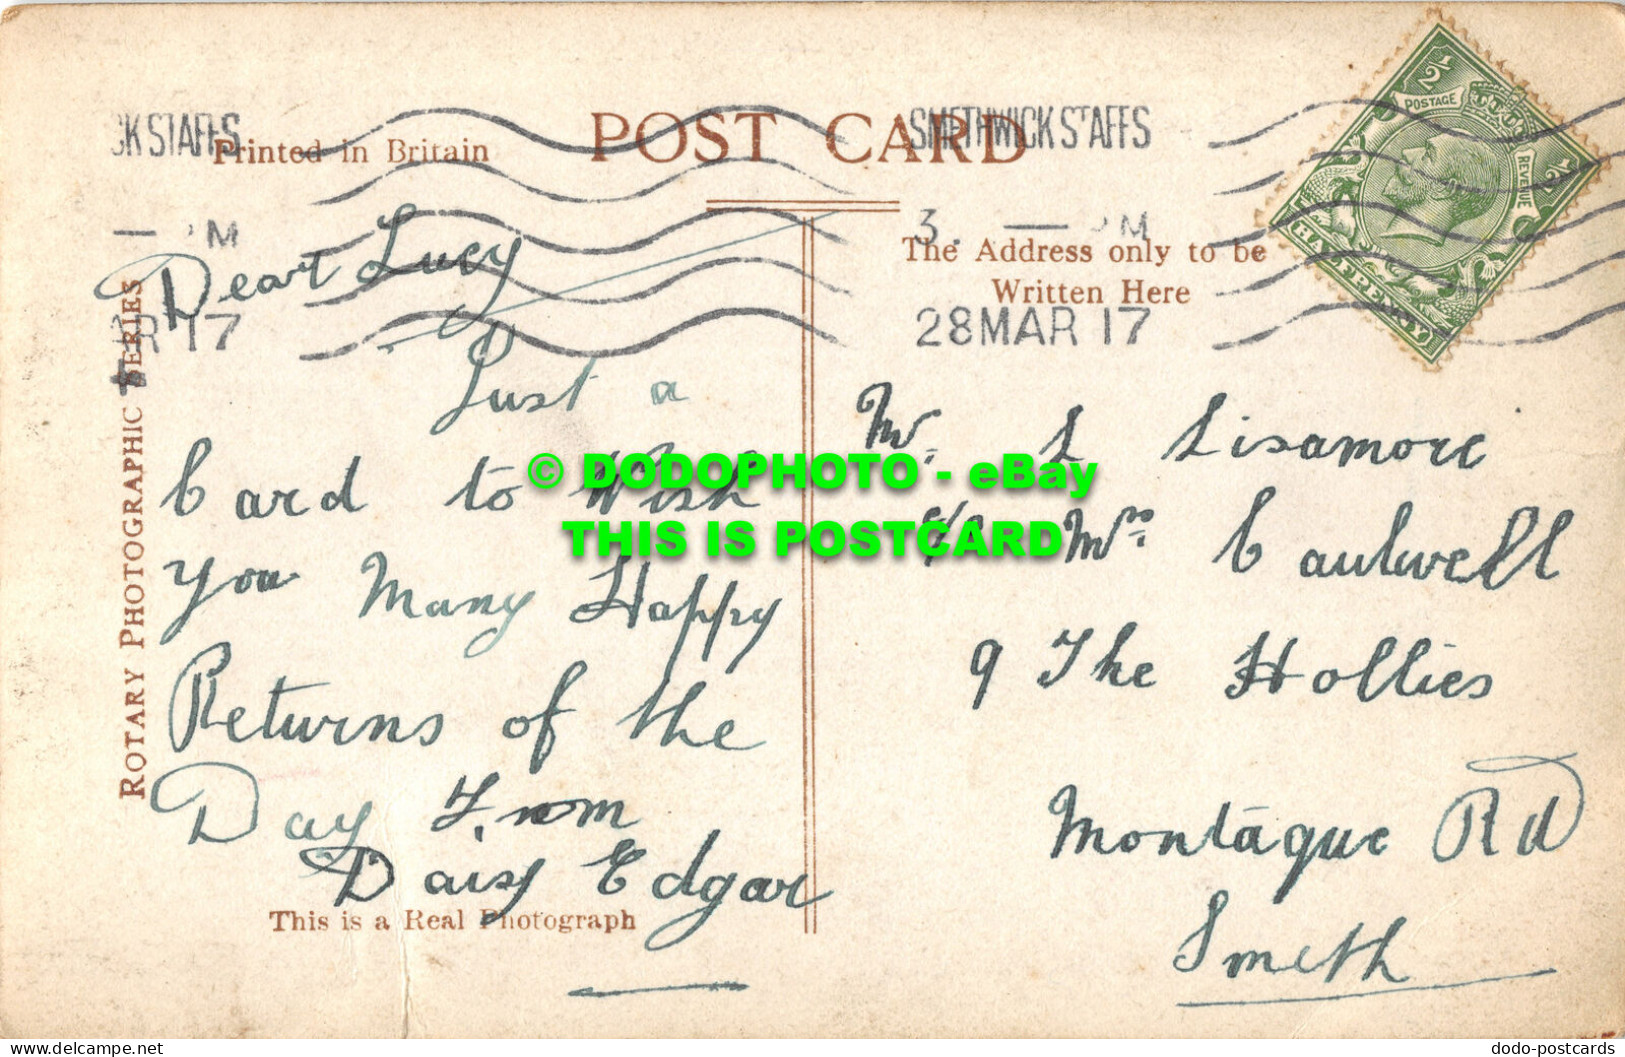 CK STAFFS
Printed in Britain
POST CARD
SMETHWICK STAFFS
M
R 17
3. — PM
28 MAR 17
POSTAGE
REVENUE
HALFPENNY
1/2
1/2
The Address only to be
Written Here
ROTARY PHOTOGRAPHIC SERIES
Dear Lucy
Just a
Card to Wish
you Many Happy
Returns of the
Day From
Daisy Edgar
This is a Real Photograph
L Lisamore
c/o Mrs Caulwell
9 The Hollies
Montague Rd
Smeth
© DODOPHOTO - eBay
THIS IS POSTCARD
delcampe.net
dodo-postcards